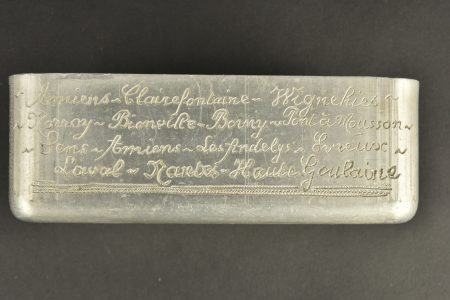 ~Amiens~Clairefontaine~Wignehies~
~Norroy~Bionville~Borny~Pont à Mousson~
~Sens~Amiens~Les Andelys~Evreux~
Laval~Nantes~Haute Goulaine